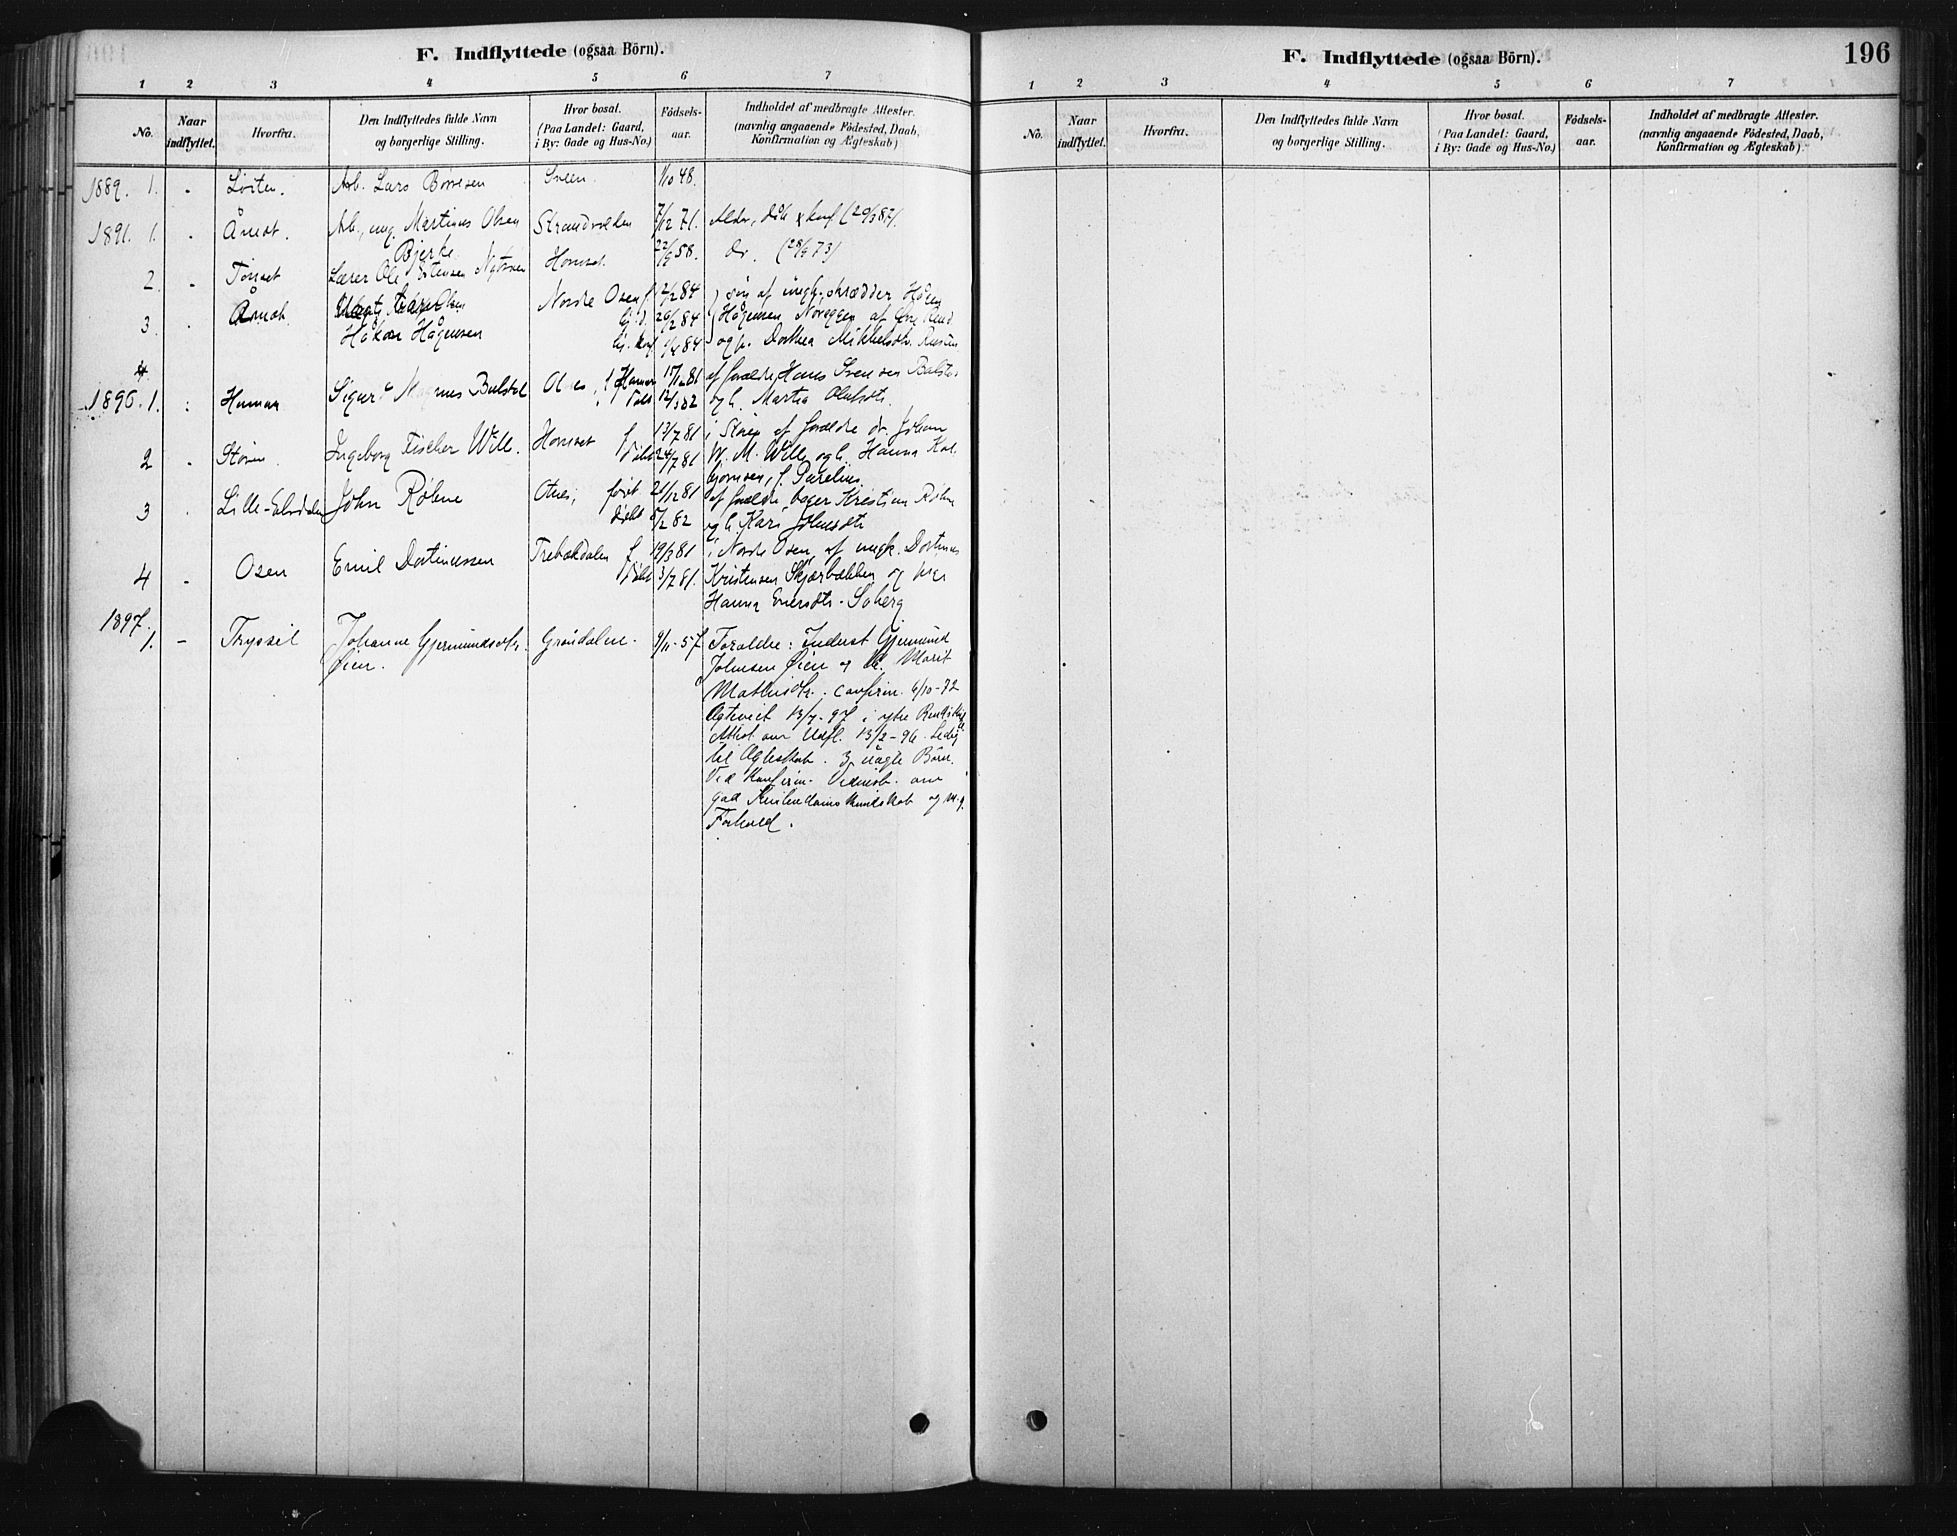 F. Indflyttede (ogsaa Börn).
1 2 3 4 5 6 7
No. Naar indflyttet. Hvorfra. Den Indflyttedes fulde Navn og borgerlige Stilling. Hvor bosat. (Paa Landet: Gaard, i By: Gade og Hus-No.) Födsels-aar. Indholdet af medbragte Attester. (navnlig angaaende Födested, Daab, Konfirmation og Ægteskab)
1889. 1. Løiten. Arb. Lars Børresen Sveen. 1/10 48.
1891. 1. Åmot. Arb., ung. Martinus Olsen Strandvolden 7/12 71. (20/3 87)
Bjerke
2 Tønset Lærer Ole Hornset 22/9 58. do.
3 Åmot. Nordre Osen f. 2/2 84 søn af ungk. skrædder Hågen
26/2 84 Hågensen af
Håkon Hågensen 84 og p. Dorthea Mikkelsdtr.
4.
1896. 1. Hamar Sigurd Magnus Balstad Otnes, f Hamar 15/12 81 af forældre Hans Svensen
døbt 12/3 82 og h. Martia Olufsdtr.
2 Støren Ingeborg Fischer Will. Hornset f 13/7 81 i Støren af forældre dr. Johan
døbt 24/7 81 W. M. Will og h. Hanna
f. Parelius.
3 Lille-Elvdalen John Røhne Otnes, født 21/12 81 af forældre bager Kristian Røhne
døbt 5/2 82 og h. Kari Johnsdtr
4 Osen Emil Dortinussen Trebækdalen f 19/3 81 i Nordre Osen af ungk. Dortinus
døbt 3/7 81. Kristensen Skjærbækken og pige
Hanna Enersdtr. Soberg
1897.
1. - Trysil Johanne Gjermundsdtr. Grøndalen. 9/11-57 Forældre: Inderst Gjermund
Øien. Johnsen Øien og H. Marit
Mathisdtr. confirm. 6/10-72
Ægteviet 13/7-97 i ytre Rendal
Attest om Udfl. 13/2-96. Ledig
til Ægteskab. 3 uægte Børn.
Ved Konfirm. Vidnesb. om
god Kristendomskundskab og m. g.
Forhold.
F. Indflyttede (ogsaa Börn).
196
1 2 3 4 5 6 7
No. Naar indflyttet. Hvorfra. Den Indflyttedes fulde Navn og borgerlige Stilling. Hvor bosat. (Paa Landet: Gaard, i By: Gade og Hus-No.) Födsels-aar. Indholdet af medbragte Attester. (navnlig angaaende Födested, Daab, Konfirmation og Ægteskab)